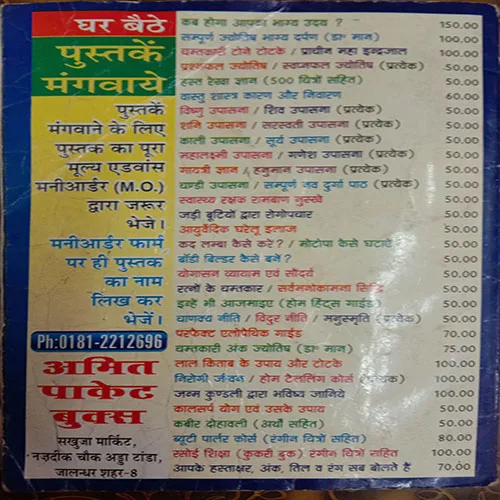 घर बैठे
पुस्तकें
मंगवाये
पुस्तकें
मंगवाने के लिए
पुस्तक का पूरा
मूल्य एडवांस
मनीआर्डर (M.O.)
द्वारा जरूर
भेजे।
मनीआर्डर फार्म
पर ही पुस्तक
का नाम
लिख कर
भेजें।
Ph:0181-2212696
अमित
पाकेट
बुक्स
सखुजा मार्किट,
नज़दीक चौक अड्डा टांडा,
जालन्धर शहर-8
कब होगा आपका भाग्य उदय ? 150.00
सम्पूर्ण ज्योतिष भाग्य दर्पण (डा० मान) 100.00
चमत्कारी टोने टोटके / प्राचीन महा इन्द्रजाल 100.00
प्रश्नफल ज्योतिष / स्वप्नफल ज्योतिष (प्रत्येक) 50.00
हस्त रेखा ज्ञान (500 चित्रों सहित) 50.00
वास्तु शास्त्र कारण और निवारण 60.00
विष्णु उपासना / शिव उपासना (प्रत्येक) 50.00
शनि उपासना / सरस्वती उपासना (प्रत्येक) 50.00
काली उपासना / सूर्य उपासना (प्रत्येक) 50.00
महालक्ष्मी उपासना / गणेश उपासना (प्रत्येक) 50.00
गायत्री ज्ञान / हनुमान उपासना (प्रत्येक) 50.00
चण्डी उपासना / सम्पूर्ण नव दुर्गा पाठ (प्रत्येक) 50.00
स्वास्थ्य रक्षक रामबाण नुस्खे 50.00
जड़ी बूटियों द्वारा रोगोपचार 50.00
आयुर्वेदिक घरेलू इलाज 50.00
कद लम्बा कैसे करें? / मोटापा कैसे घटाएं? 50.00
बॉडी बिल्डर कैसे बने? 50.00
योगासन व्यायाम एवं सौंदर्य 50.00
रत्नो के चमत्कार / सर्वमनोकामना सिद्धि 50.00
इन्हे भी आजमाइए (होम हिंट्स गाईड) 50.00
चाणक्य नीति / विदुर नीति / मनुस्मृति (प्रत्येक) 50.00
परफेक्ट एलोपैथिक गाईड 70.00
चमत्कारी अंक ज्योतिष (डा० मान) 75.00
लाल किताब के उपाय और टोटके 100.00
निरोगी जीवन / होम टैलरिंग कोर्स (प्रत्येक) 100.00
जन्म कुण्डली द्वारा भविष्य जानिये 100.00
कालसर्प योग एवं उसके उपाय 50.00
कबीर दोहावली (अर्थो सहित) 50.00
ब्यूटी पार्लर कोर्स (रंगीन चित्रों सहित) 80.00
रसोई शिक्षा (कुकरी बुक) रंगीन चित्रों सहित 100.00
आपके हस्ताक्षर, अंक, तिल व रंग सब बोलते हैं 70.00